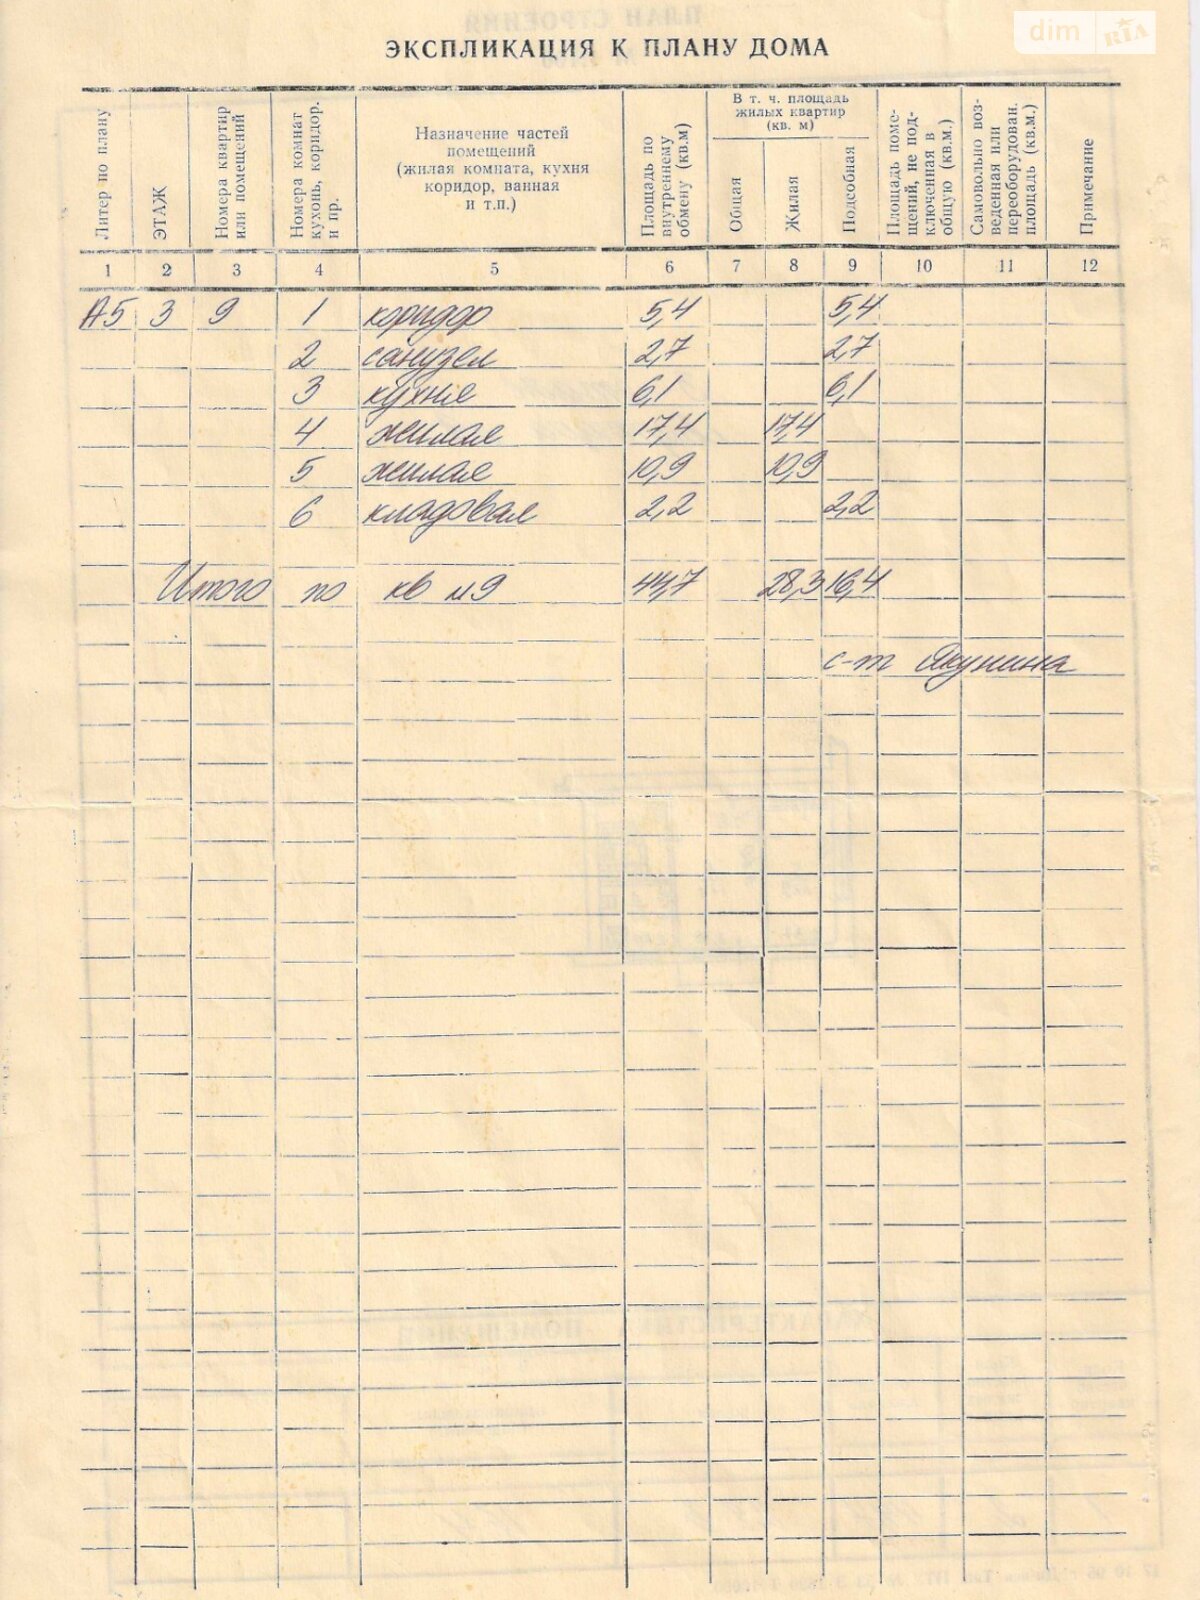 dim RIA
ЭКСПЛИКАЦИЯ К ПЛАНУ ДОМА
Литер по плану
ЭТАЖ
Номера квартир или помещений
Номера комнат кухонь, коридор. и пр.
Назначение частей помещений (жилая комната, кухня коридор, ванная и т.п.)
Площадь по внутреннему обмену (кв.м)
В т. ч. площадь жилых квартир (кв. м)
Общая
Жилая
Подсобная
Площадь помещений, не подключенная в общую (кв.м.)
Самовольно возведенная или переоборудован. площадь (кв.м.)
Примечание
1 2 3 4 5 6 7 8 9 10 11 12
А5 3 9 1 коридор 5,4 5,4
2 санузел 2,7 2,7
3 кухня 6,1 6,1
4 жилая 17,4 17,4
5 жилая 10,9 10,9
6 кладовая 2,2 2,2
Итого по кв №9 44,7 28,3 16,4
с-т Якунина